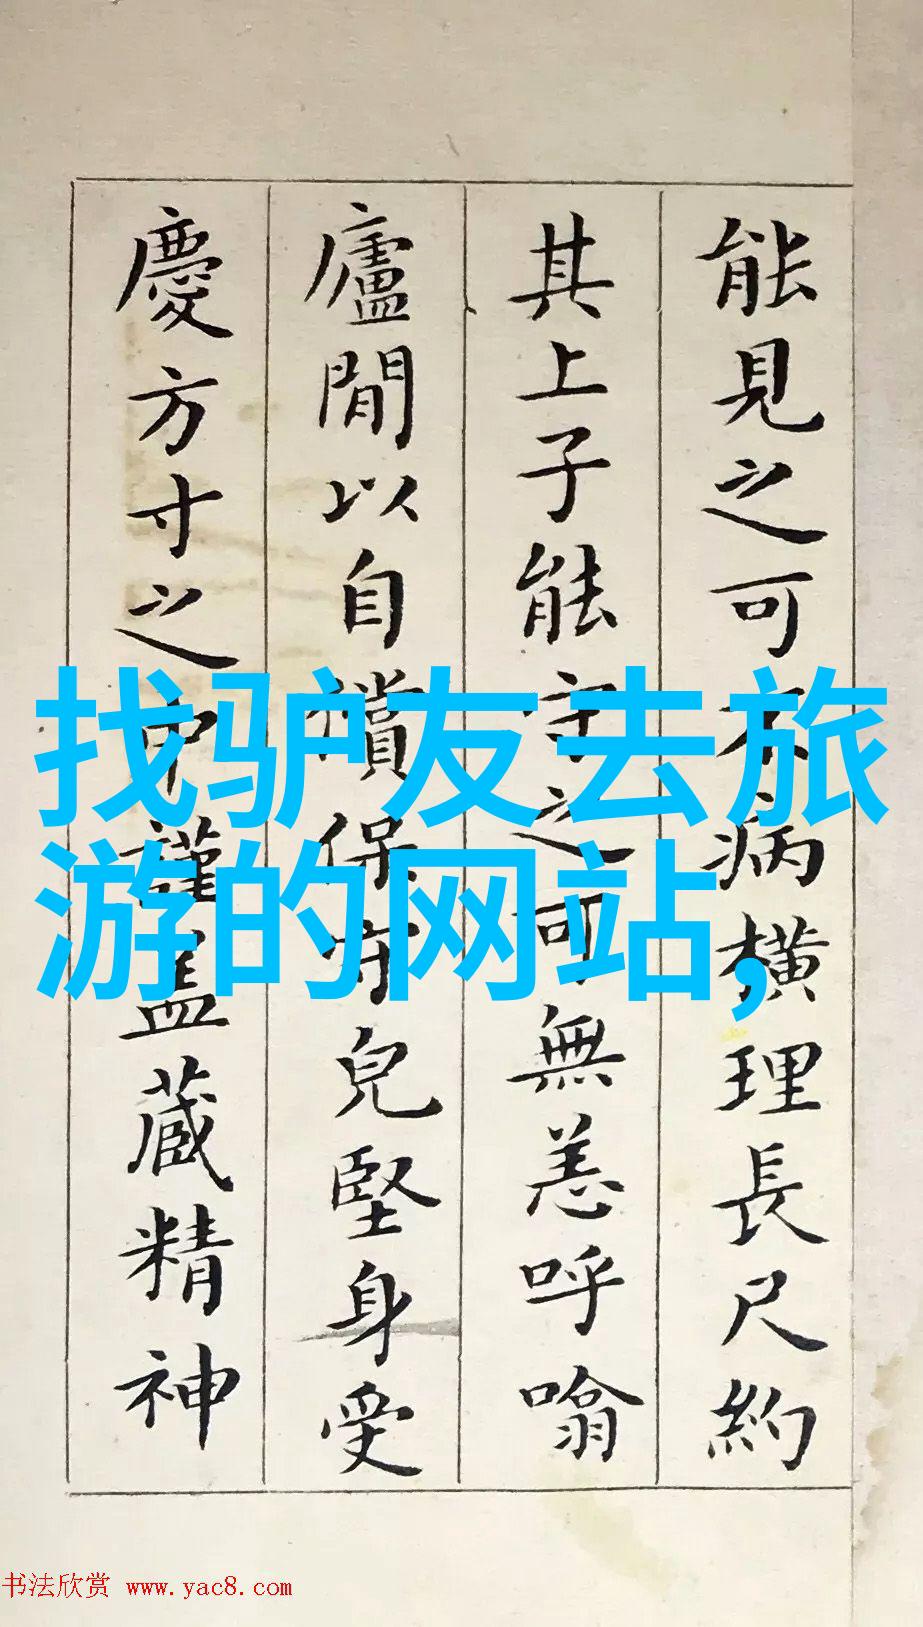 能見之可不病橫理長尺約
其上子能守之可無恙呼噏
廬閒以自償保守皃堅身受
慶方寸之中謹蓋藏精神
找驴友去旅
游的网站,
书法欣赏 www.yac8.com